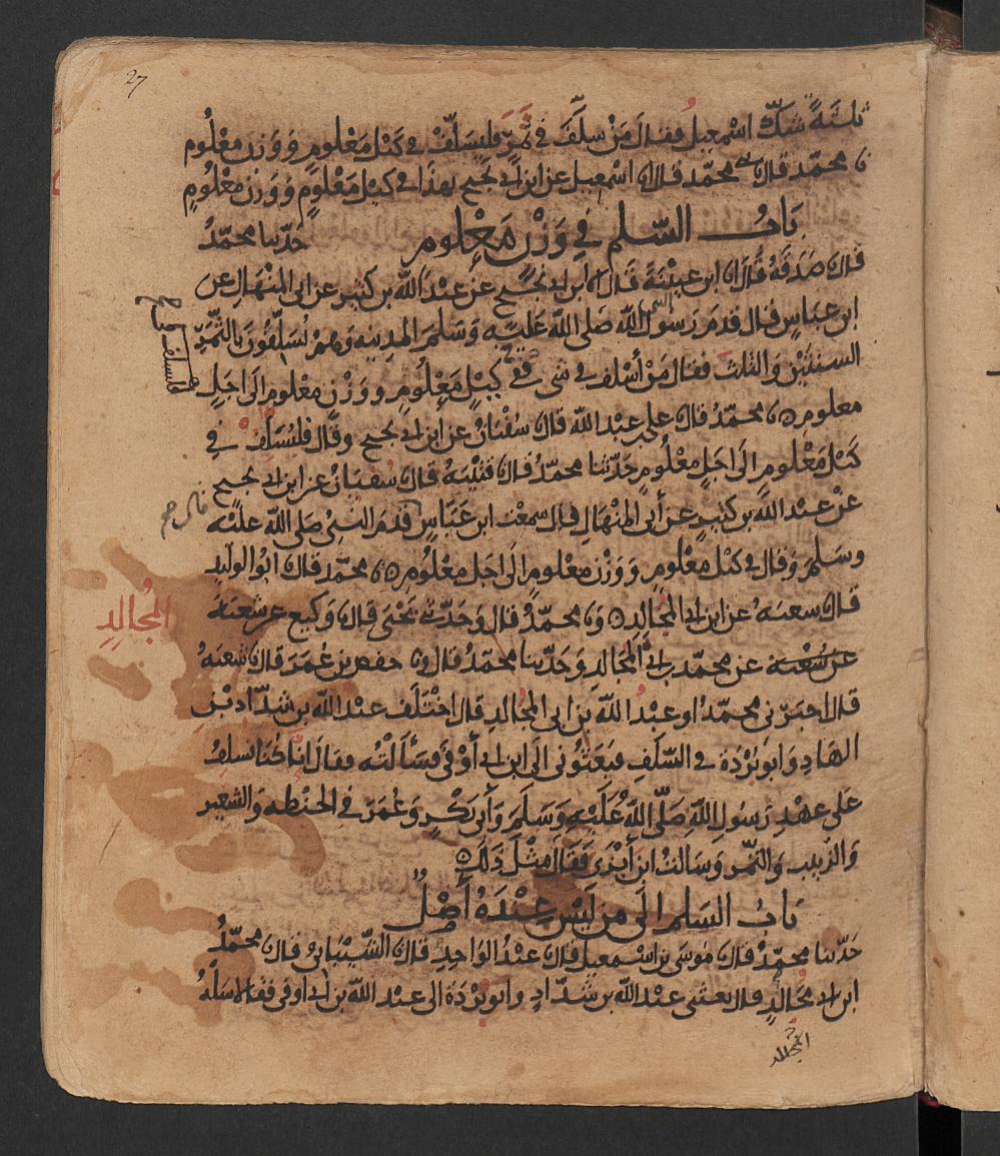 27
ثلثة شك اسمعيل فقال من سلف في تمر فليسلف في كيل معلوم ووزن معلوم
محمد قال محمد قال اسمعيل عن ابن ابي نجيح بهذا في كيل معلوم ووزن معلوم
باب السلم في وزن معلوم حدثنا محمد
قال صدقة قال ابن عيينة قال ابن ابي نجيح عن عبد الله بن كثير عن ابي المنهال عن
ابن عباس قال قدم رسول الله صلى الله عليه وسلم المدينه وهم يسلفون بالثمر
السنتين والثلث فقال من أسلف في شي ففي كيل معلوم ووزن معلوم الى اجل
معلوم محمد قال علي عبد الله قال سفيان عن ابن ابي نجيح وقال فليسلف في
كيل معلوم الى اجل معلوم حدثنا محمد قال قتيبة قال سفيان عن ابن ابي نجيح
عن عبد الله بن كثير عن أبي المنهال قال سمعت ابن عباس قدم النبي صلى الله عليه
وسلم وقال في كيل معلوم ووزن معلوم الى اجل معلوم محمد قال ابو الوليد
قال شعبه عن ابن ابي المجالد محمد قال وحدثني يحيى قال وكيع عن شعبة
المجالد
عن شعبة عن محمد بن ابي المجالد وحدثنا محمد قال حفص بن عمر قال شعبه
قال اخبرني محمد او عبد الله بن ابي المجالد قال اختلف عبد الله بن شداد بن
الهاد وابو بردة في السلف فبعثوني الى ابن ابي أوفى فسألته فقال انا كنا نسلف
على عهد رسول الله صلى الله عليه وسلم وأبي بكر وعمر في الحنطه والشعير
والزبيب والتمر وسالت ابن أبزى فقال مثل ذلك
باب السلم الى من ليس عنده أصل
حدثنا محمد قال موسى بن اسمعيل قال عبد الواحد قال الشيباني قال محمد
ابن ابي مجالد قال بعثني عبد الله بن شداد وابو بردة الى عبد الله بن ابي اوفى فقالا سله
المجالد